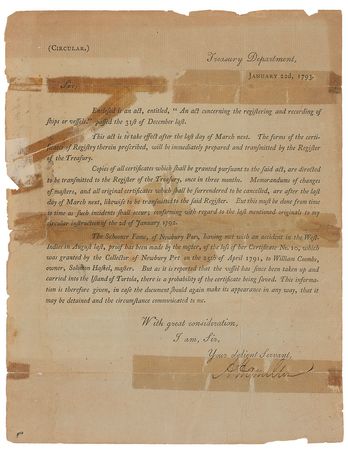 (CIRCULAR.)
Treasury Department,
JANUARY 22d, 1793.
Sir,
Enclosed is an act, entitled, "An act concerning the registering and recording of
ships or vessels," passed the 31st of December last.
This act is to take effect after the last day of March next. The forms of the certi-
ficates of Registry therein prescribed, will be immediately prepared and transmitted by the Register
of the Treasury.
Copies of all certificates which shall be granted pursuant to the said act, are directed
to be transmitted to the Register of the Treasury, once in three months. Memorandums of changes
of masters, and all original certificates which shall be surrendered to be cancelled, are after the last
day of March next, likewise to be transmitted to the said Register. But this must be done from time
to time as such incidents shall occur; conforming with regard to the last mentioned originals to my
circular instruction of the 2d of January 1792.
The Schooner Fame, of Newbury Port, having met with an accident in the West-
Indies in August last, proof has been made by the master, of the loss of her Certificate No. 10, which
was granted by the Collector of Newbury Port on the 25th of April 1791, to William Coombs,
owner, Solomon Haskel, master. But as it is reported that the vessel has since been taken up and
carried into the Island of Tortola, there is a probability of the certificate being saved. This
information is therefore given, in case the document should again make its appearance in any way, that it
may be detained and the circumstance communicated to me.
With great consideration,
I am, Sir,
Your obedient Servant,
A Hamilton